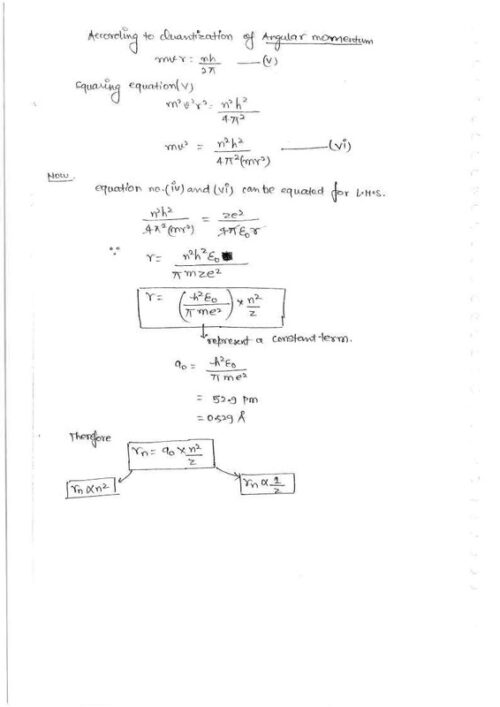 According to Quantization of Angular momentum
mvr = nh/2π —(v)
Squaring equation(v)
m²v²r² = n²h²/4π²
mv² = n²h²/4π²(mr²) —(vi)
Now
equation no.(iv) and (vi) can be equated for L.H.S.
n²h²/4π²(mr²) = ze²/4πε₀r
∵ r = n²h²ε₀/πmze²
r = (h²ε₀/πme²) × n²/z
represent a constant term.
a₀ = h²ε₀/πme²
= 52.9 pm
= 0.529 Å
Therefore
rₙ = a₀ × n²/z
rₙ ∝ n² rₙ ∝ 1/z